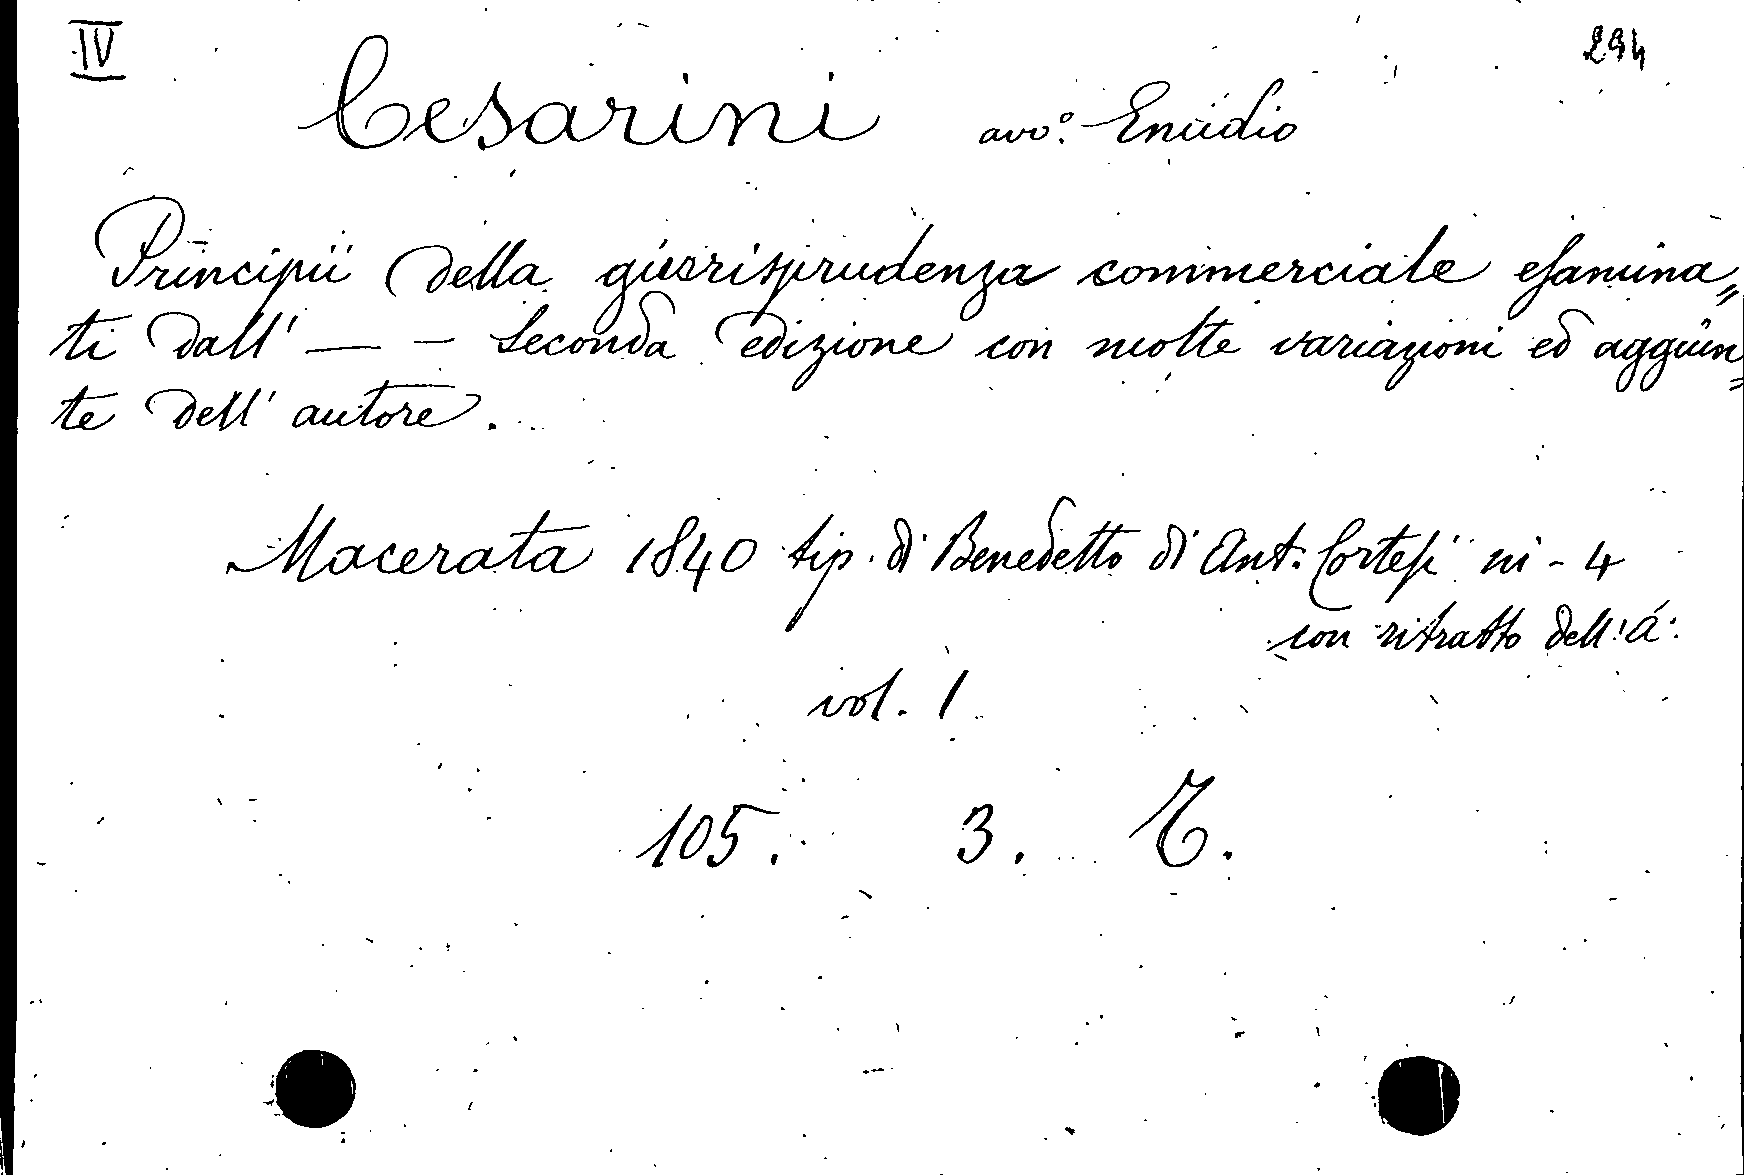 IV 294
Cesarini avv.º Emidio
Principii della giurisprudenza commerciale esamina„
ti dall' — – Seconda edizione con molte variazioni ed aggiun„
te dell' autore.
Macerata 1840 tip. di Benedetto di Ant. Cortesi in-4
con ritratto dell'a.
vol. 1
105. 3.